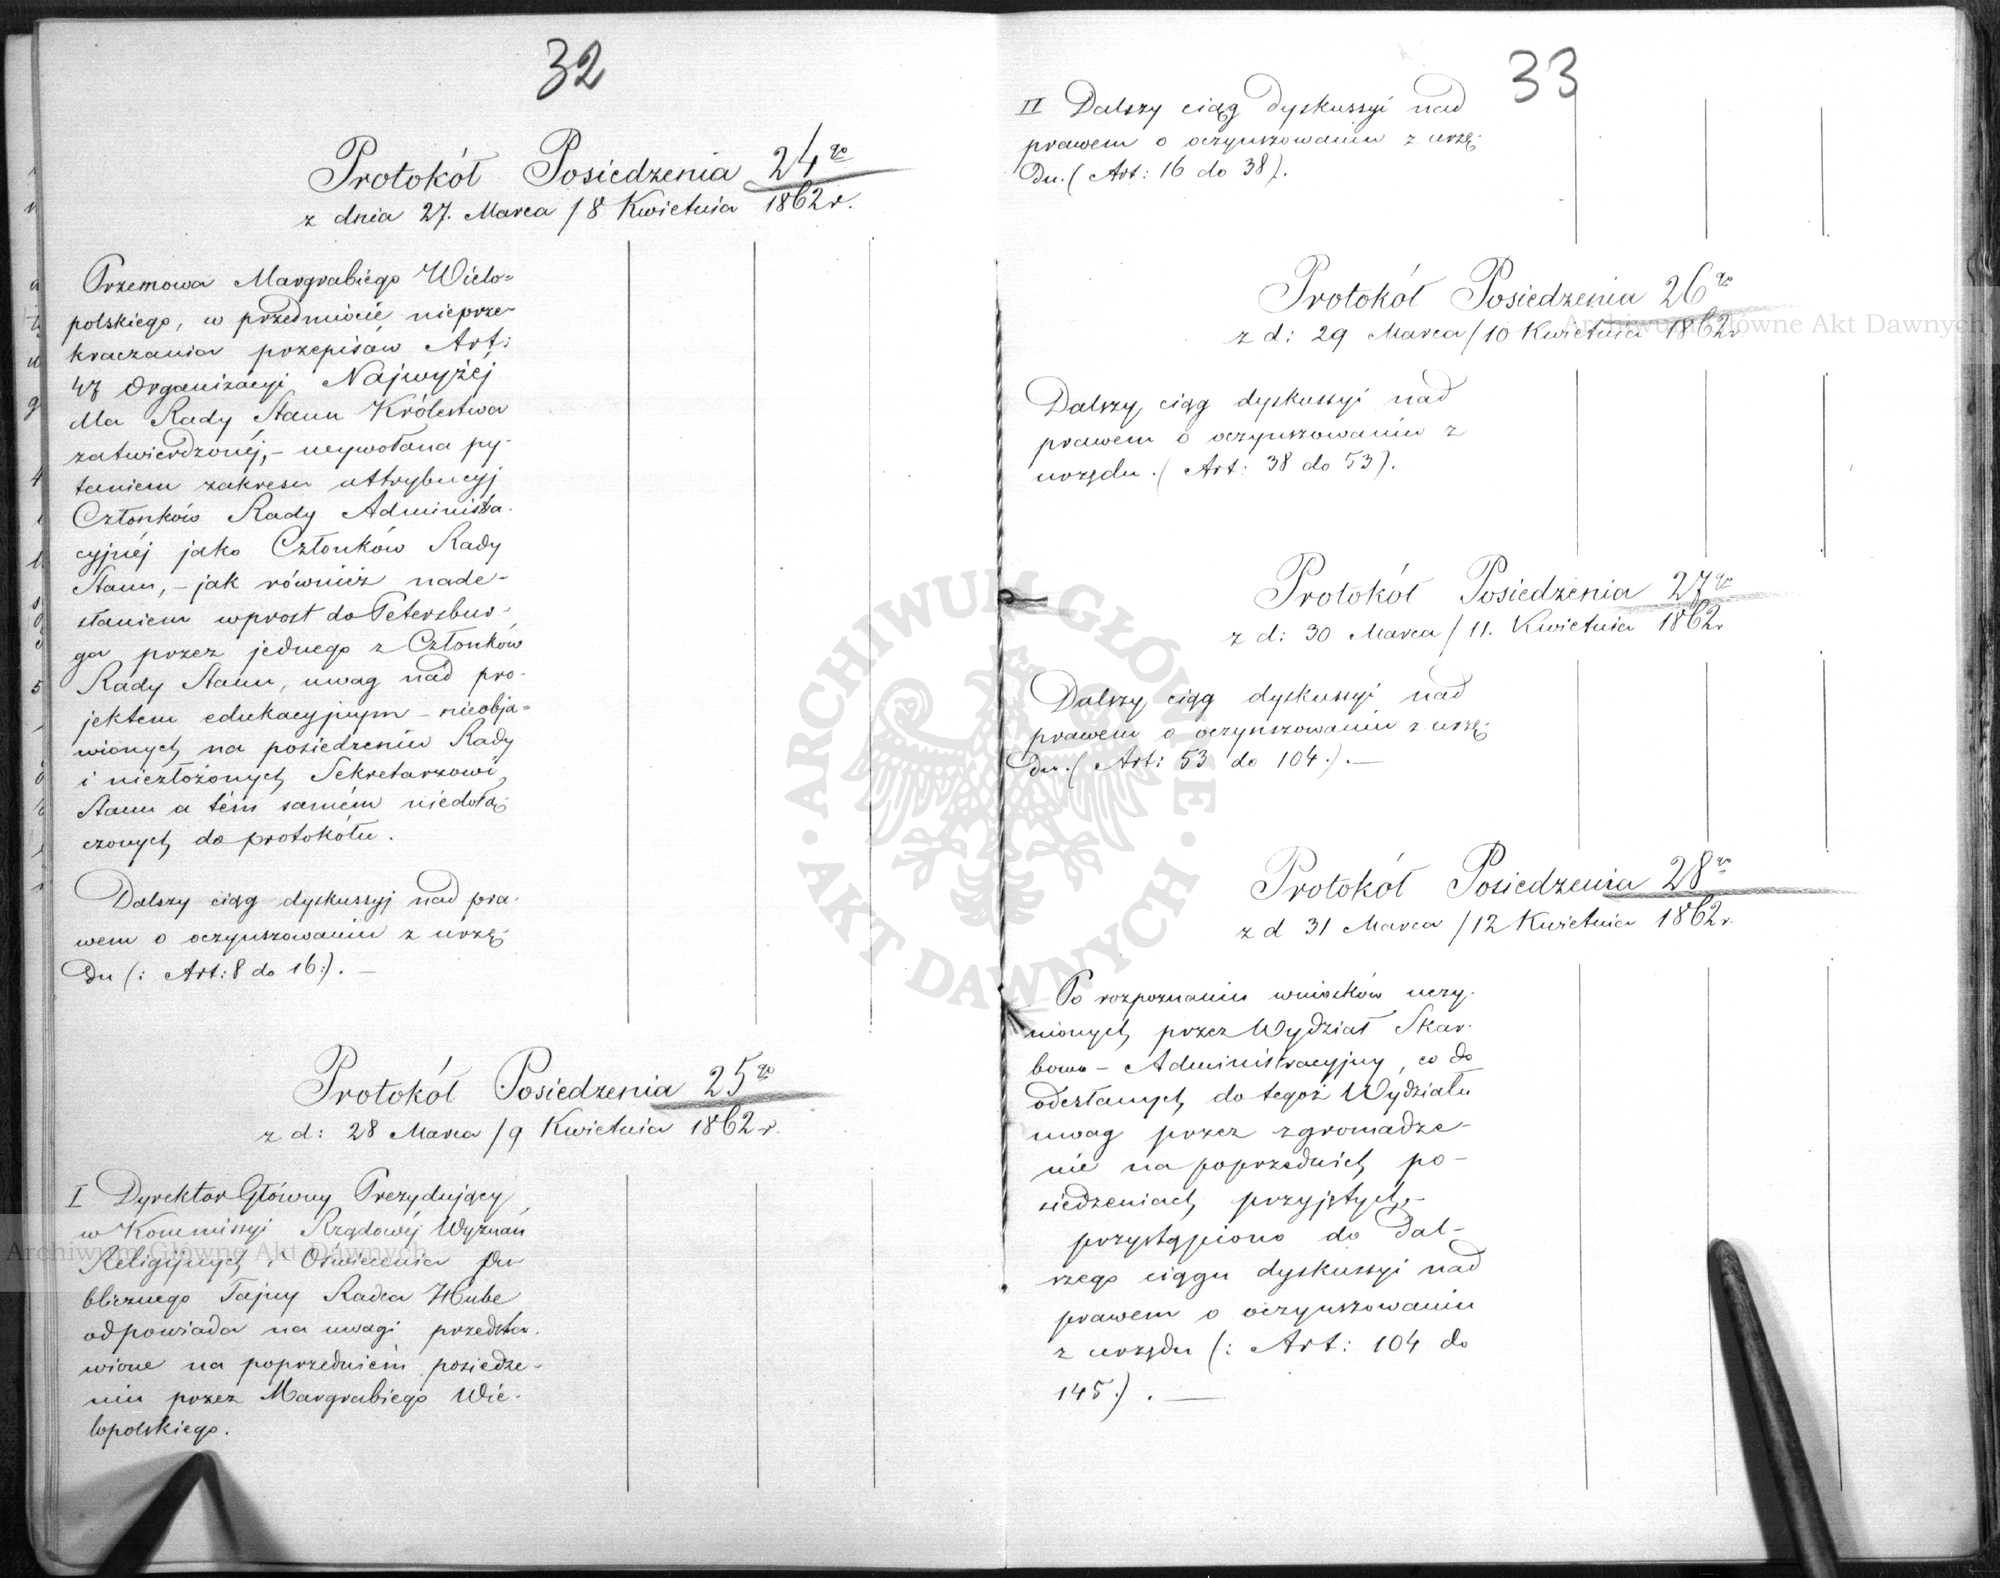 32
Protokół Posiedzenia 24go
z dnia 27. Marca / 8 Kwietnia 1862 r.
Przemowa Margrabiego Wielo=
polskiego, w przedmiocie nieprze-
kraczania przepisów Art:
47 Organizacyi Najwyżéj
dla Rady Stanu Królestwa
zatwierdzonéj, – wywołana py-
taniem zakresu attrybucyj
Członków Rady Administra-
cyjnéj jako Członków Rady
Stanu, – jak również nade-
słaniem wprost do Petersbur-
ga przez jednego z Członków
Rady Stanu, uwag nad pro-
jektem edukacyjnym – nieobja=
wionych na posiedzeniu Rady
i niezłożonych Sekretarzowi
Stanu a tém samém niedołą-
czonych do protokółu.
Dalszy ciąg dyskussyj nad pra-
wem o oczynszowaniu z urzę-
du (: Art: 8 do 16:). —
Protokół Posiedzenia 25go
z d: 28 Marca / 9 Kwietnia 1862 r.
I Dyrektor Główny Prezydujący
w Kommissyi Rządowéj Wyznań
Religijnych i Oświecenia Pu
blicznego Tajny Radca Hube
odpowiada na uwagi przedsta-
wione na poprzedniém posiedze-
niu przez Margrabiego Wie-
lopolskiego.
33
II Dalszy ciąg dyskussyi nad
prawem o oczynszowaniu z urzę-
du. (Art: 16 do 38).
Protokół Posiedzenia 26go
z d: 29 Marca / 10 Kwietnia 1862 r.
Dalszy ciąg dyskussyi nad
prawem o oczynszowaniu z
urzędu. (Art: 38 do 53).
Protokół Posiedzenia 27go
z d: 30 Marca / 11. Kwietnia 1862 r
Dalszy ciąg dyskussyi nad
prawem o oczynszowaniu z urzę-
du. (Art: 53 do 104.). —
Protokół Posiedzenia 28go
z d 31 Marca / 12 Kwietnia 1862 r.
Po rozpoznaniu wniosków uczy-
nionych przez Wydział Skar-
bowo – Administracyjny, co do
odesłanych do tegoż Wydziału
uwag przez zgromadze-
nie na poprzednich po-
siedzeniach przyjętych, –
przystąpiono do dal-
szego ciągu dyskussyi nad
prawem o oczynszowaniu
z urzędu (: Art: 104 do
145.). —
ARCHIWUM GŁÓWNE · AKT DAWNYCH ·
Archiwum Główne Akt Dawnych
Archiwum Główne Akt Dawnych